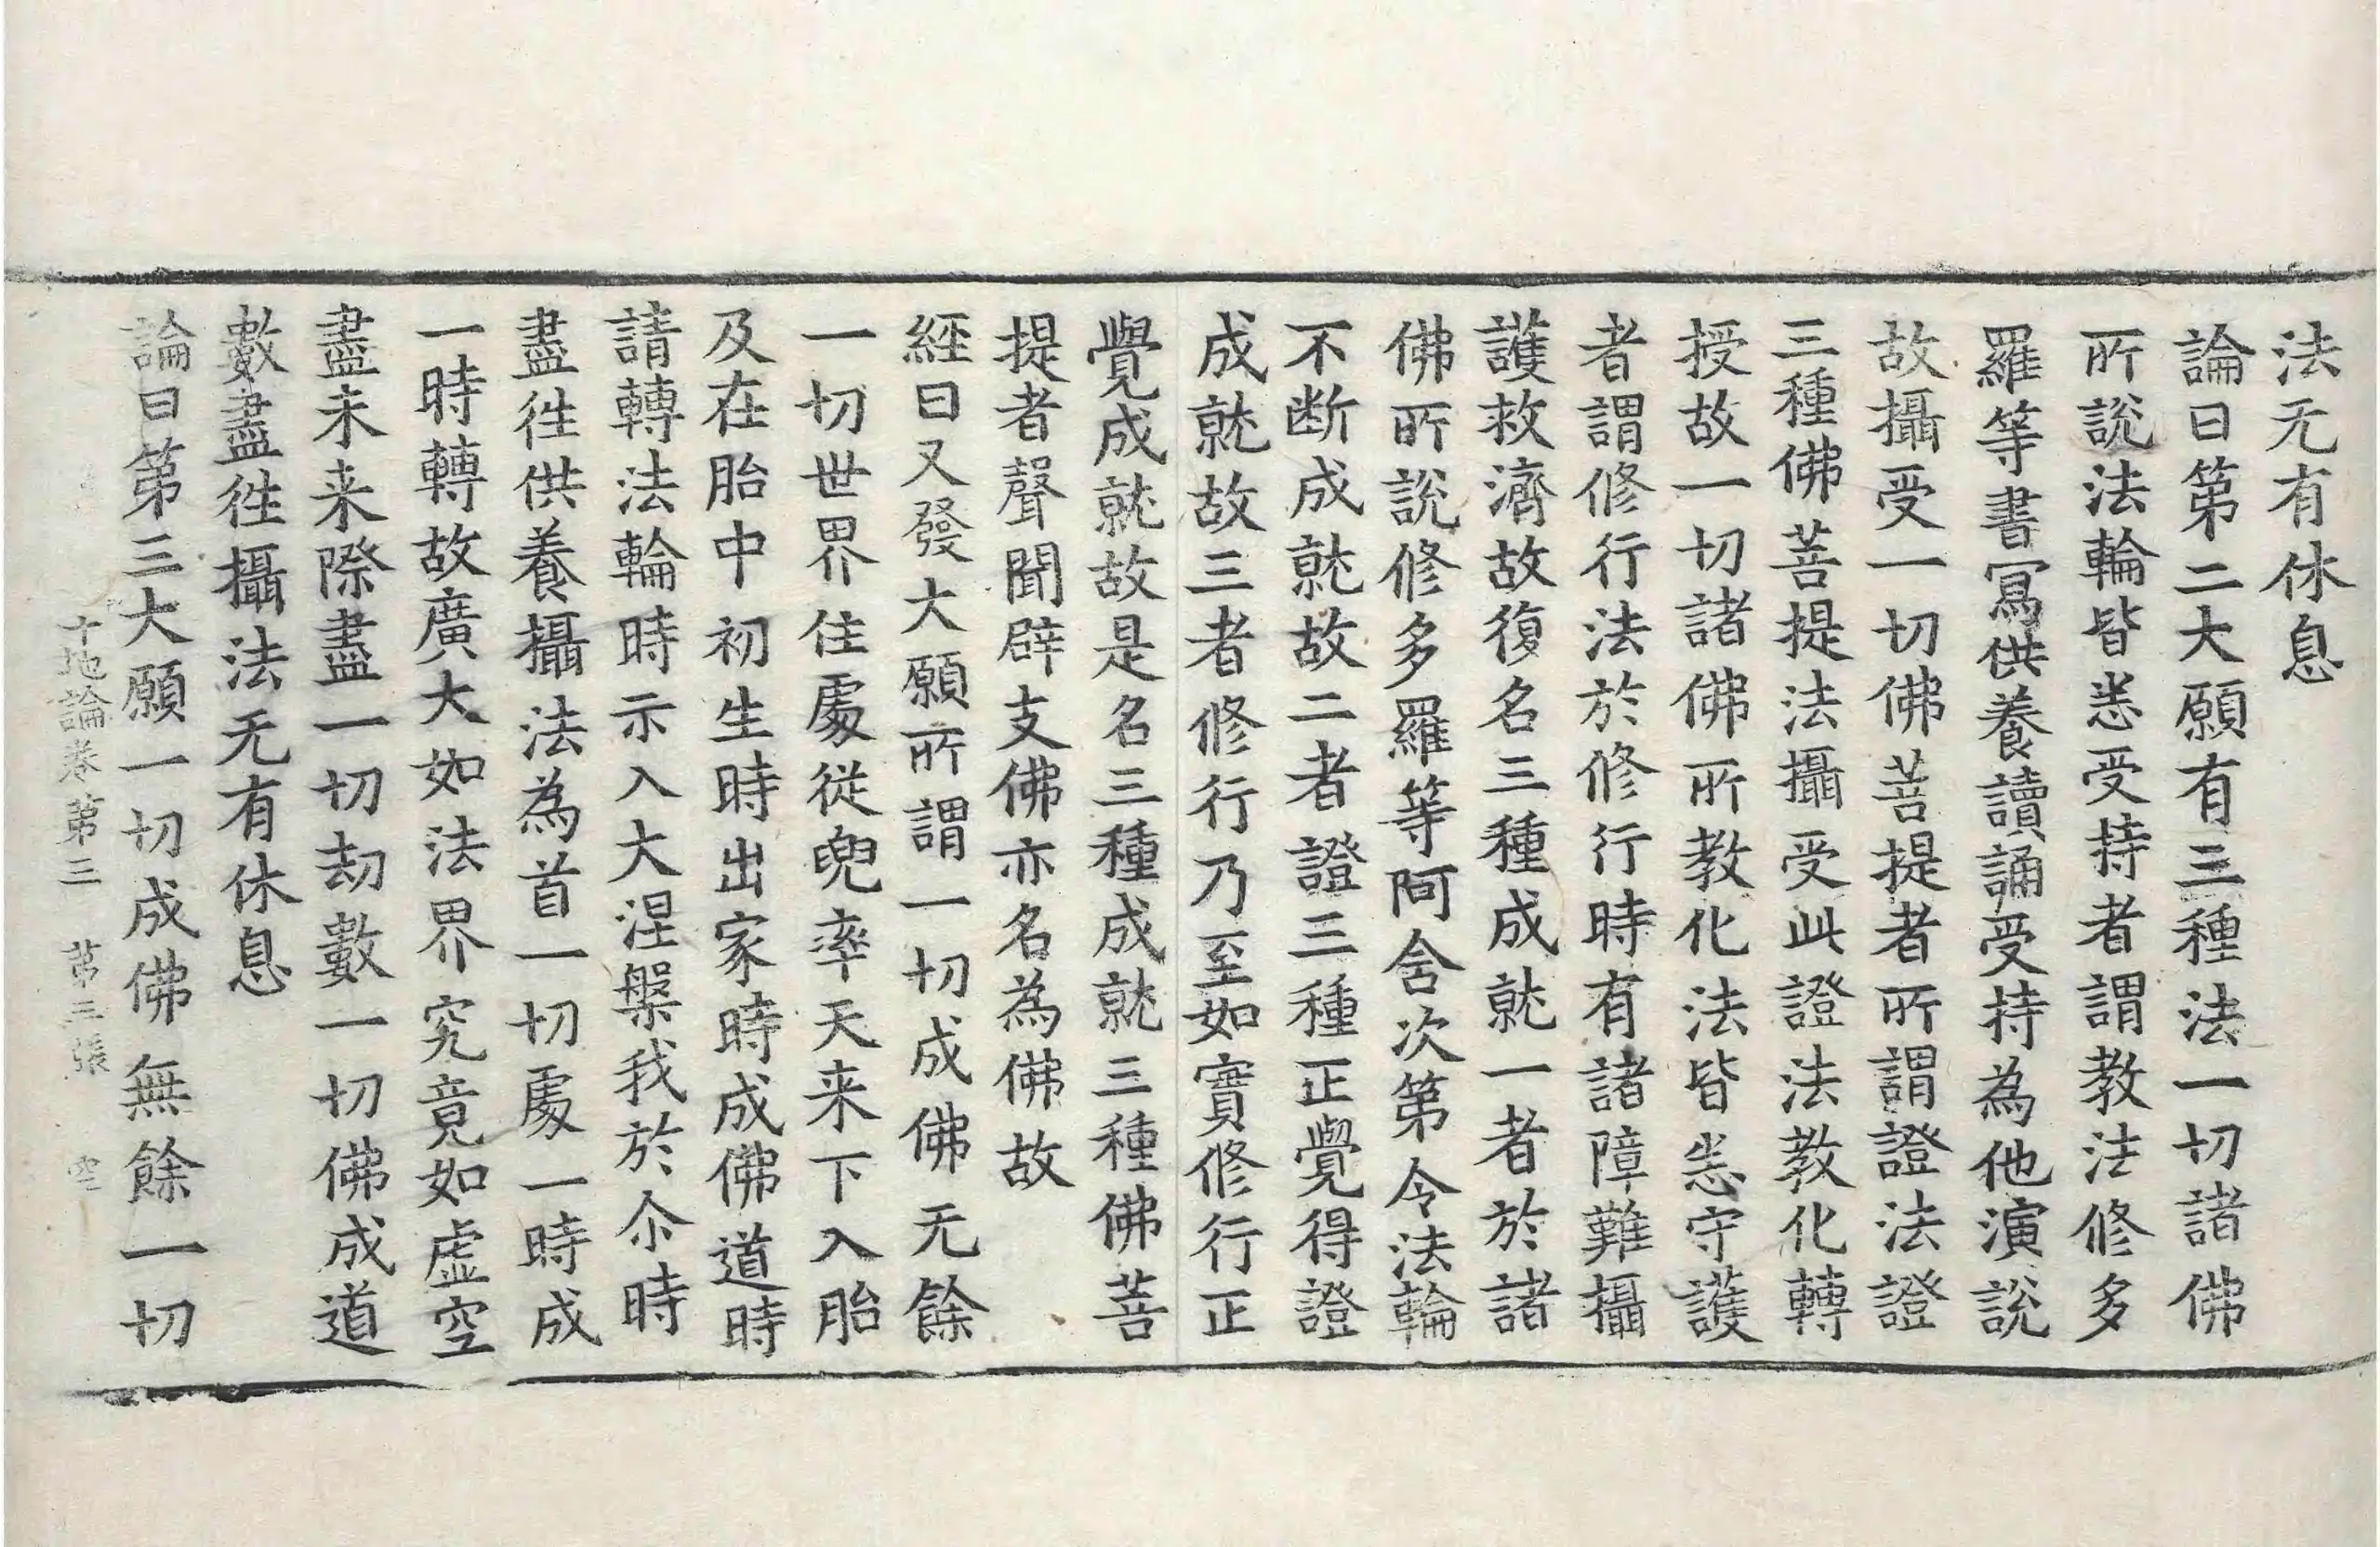 法无有休息
論曰第二大願有三種法一切諸佛
所說法輪皆悉受持者謂教法修多
羅等書寫供養讀誦受持為他演說
故攝受一切佛菩提者所謂證法證
三種佛菩提法攝受此證法教化轉
授故一切諸佛所教化法皆悉守護
者謂修行法於修行時有諸障難攝
護救濟故復名三種成就一者於諸
佛所說修多羅等阿含次第令法輪
不断成就故二者證三種正覺得證
成就故三者修行乃至如實修行正
覺成就故是名三種成就三種佛菩
提者聲聞辟支佛亦名為佛故
經曰又發大願所謂一切成佛无餘
一切世界住處從兜率天来下入胎
及在胎中初生時出家時成佛道時
請轉法輪時示入大涅槃我於尒時
盡徃供養攝法為首一切處一時成
一時轉故廣大如法界究竟如虛空
盡未来際盡一切劫數一切佛成道
數盡徃攝法无有休息
論曰第三大願一切成佛無餘一切
十地論卷第三 第三張 空